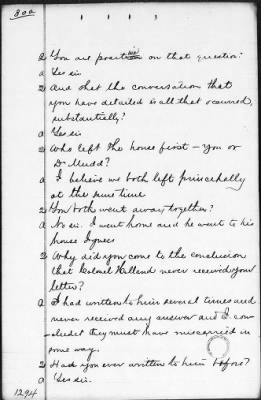 80a
Q You are positive on that question?
a Yes sir
Q And that the conversation that
you have detailed is all that occurred,
substantially?
a Yes sir
Q Who left the house first — You or
Dr Mudd?
a I believe we both left principally
at the same time
Q You both went away together?
a No sir. I went home and he went to his
house I guess
Q Why did you come to the conclusion
that Colonel Holland never received your
letter?
a I had written to him several times and
never received any answer and I con-
cluded they must have miscarried in
some way.
Q Had you ever written to him before?
a Yes sir.
1294